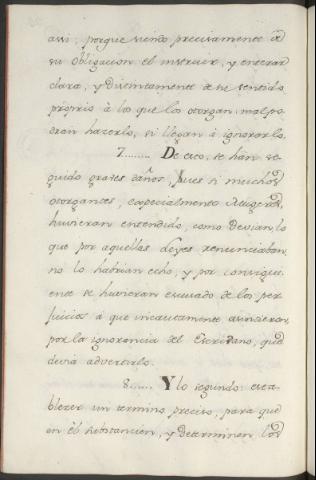 assi, porque siendo precisamente de
su obligacion el instruir, y enterar
clara, y distintamente de su sentido
proprio à los que los otorgan, mal po-
dran hacerlo, si llegan à ignorarlo.
7........ De esto, se han se-
guido graves daños, Pues si muchos
otorgantes, especialmente Mugeres,
huvieran entendido, como devian, lo
que por aquellas Leyes renunciaban,
no lo habrian echo, y por consigui-
ente se huvieran escusado de los per-
juicios à que incautamente asintieron,
por la ignorancia del Escribano, que
devia advertirlo.
8...... Y lo segundo: esta-
blezer un termino preciso, para que
en èl substancien, y determinen los